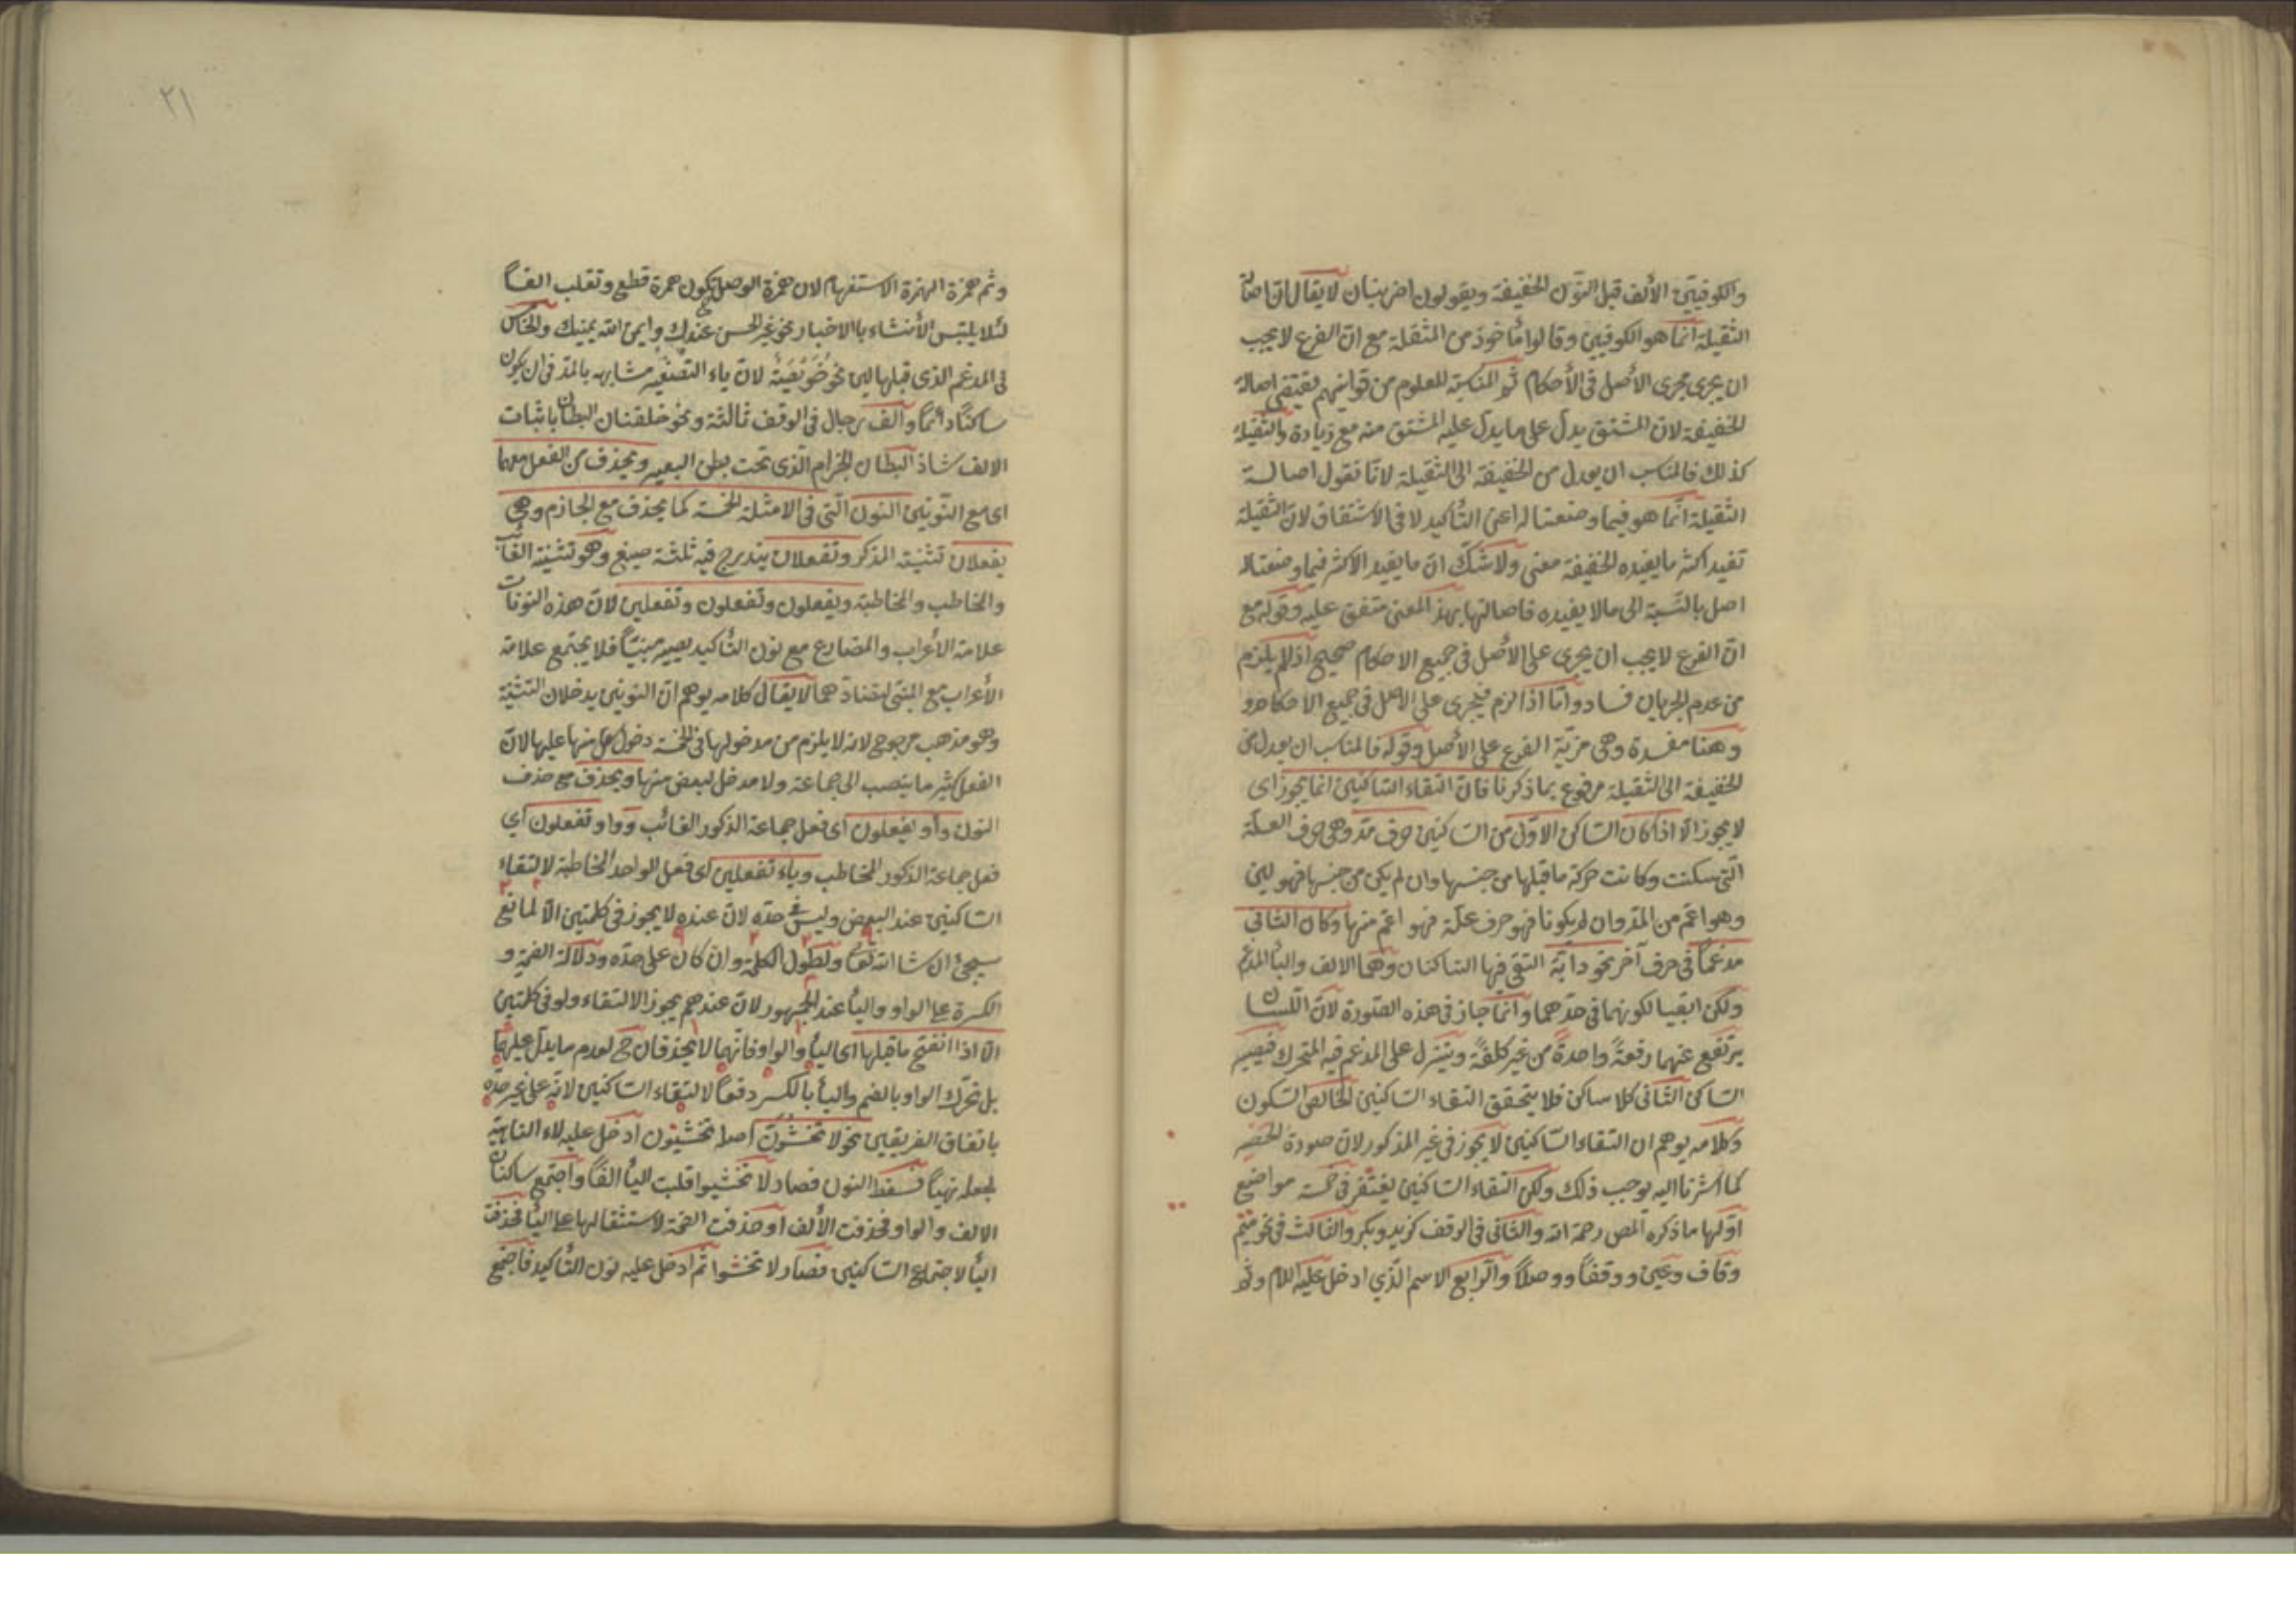 والكوفيين الألف قبل النون الخفيفة ويقولون اضربنان لا يقال ان اصالة
الثقيلة انما هو الكوفيين وقالوا مأخوذ من المثقلة مع ان الفرع لا يجب
ان يجرى مجرى الأصل في الأحكام ثم المناسبة للعلوم من قوانينهم يقتضي اصالة
الخفيفة لان المشتق يدل على ما يدل عليه المشتق منه مع زيادة والثقيلة
كذلك فالمناسب ان يعدل من الخفيفة الى الثقيلة لانا نقول اصالة
الثقيلة انما هو فيما وضعتا له اعنى التأكيد لا في الاشتقاق لان الثقيلة
تفيد اكثر ما يفيده الخفيفة معنى ولا شك ان ما يفيد الاكثر فيما وضعتا له
اصل بالنسبة الى ما لا يفيده فاصالتها بهذا المعنى متفق عليه وقوله مع
ان الفرع لا يجب ان يجرى على الأصل في جميع الاحكام صحيح اذا لم يلزم
من عدم الجريان فساد واما اذا لزم فيجرى على الاصل في جميع الاحكام و
وهنا مفسدة وهي مزية الفرع على الأصل وقوله فالمناسب ان يعدل من
الخفيفة الى الثقيلة مرفوع بما ذكرنا فان التقاء الساكنين انما يجوز اى
لا يجوز الا اذا كان الساكن الاول من الساكنين حرف مد وهي حرف العلة
التي سكنت وكانت حركة ما قبلها من جنسها وان لم يكن من جنسها فهو لين
وهو اعم من المد وان لم يكونا فهو حرف علة فهو اعم منها وكان الثاني
مدغما في حرف آخر نحو دابة التقى فيها الساكنان وهما الالف والبا المدغم
ولكن ابقيا لكونهما في حدهما وانما جاز في هذه الصورة لان اللسان
يرتفع عنهما رفعة واحدة من غير كلفة وينزل على المدغم فيه المتحرك فيصير
الساكن الثاني كلا ساكن فلا يتحقق التقاء الساكنين الخالص السكون
وكلامه يوهم ان التقاء الساكنين لا يجوز في غير المذكور لان صورة الحصر
كما اشرنا اليه يوجب ذلك ولكن التقاء الساكنين يغتفر في خمسة مواضع
اولها ما ذكره المص رحمة الله والثاني في الوقف كزيد وبكر والثالث في نحو ميم
وقاف وعين ووقفا ووصلا والرابع الاسم الذي ادخل عليه اللام ونحو
٢١
وثم همزة الهمزة الاستفهام لان همزة الوصل تكون همزة قطع وتقلب الفا
لئلا يلتبس الأنشاء بالاخبار نحو غير الحسن عندك وايمن الله يمينك والخامس
في المدغم الذي قبلها لين نحو خويصة لان ياء التصغير مشابهه بالمد في ان يكون
ساكنا دائما والف رجال في الوقف ثالثة ونحو خلقتان البطان باثبات
الالف شاذ البطان الحزام الذي تحت بطن البعير ويحذف من الفعل معهما
اى مع النونين النون التي في الامثلة الخمسة كما يحذف مع الجازم وهي
يفعلان تثنية المذكر وتفعلان يندرج فيه ثلثة صيغ وهو تثنية الغائب
والمخاطب والمخاطبة ويفعلون وتفعلون وتفعلين لان هذه النونات
علامة الأعراب والمضارع مع نون التأكيد يصير مبنيا فلا يجتمع علامة
الأعراب مع المبنى لتضادهما لا يقال كلامه يوهم ان النونين يدخلان التثنية
وهو مذهب مرجوح لانه لا يلزم من مدخولها في الخمسة دخول كل منها عليها لان
الفعل كثير ما ينصب الى جماعة ولا مدخل لبعض منها ويحذف مع حذف
النون واو يفعلون اى فعل جماعة الذكور الغائب وواو تفعلون اي
فعل جماعة الذكور المخاطب وياء تفعلين اى فعل الواحد المخاطبة لالتقاء
الساكنين عند البعض وليس على حده لان عنده لا يجوز في كلمتين الا لمانع
سيجئ ان شا الله تعالى ولطول الكلمة وان كان على حده ودلالة الضمة و
الكسرة على الواو واليأ عند الجمهور لان عندهم يجوز الالتقاء ولو في كلمتين
الا اذا انفتح ما قبلها اى اليأ والواو فانهما لا يحذفان ح لعدم ما يدل عليهما
بل تحرك الواو بالضم واليأ بالكسر دفعا لالتقاء الساكنين لانه على غير حده
باتفاق الفريقين نحو لا تخشون اصله تخشيون ادخل عليه لاء الناهية
لجعله نهيا فسقط النون فصار لا تخشيوا قلبت اليأ الفا واجتمع ساكنان
الالف والواو فحذفت الألف او حذفت الضمة لاستثقالها على اليأ فحذفت
اليأ لاجتماع الساكنين فصار لا تخشوا ثم ادخل عليه نون التأكيد فاجتمع